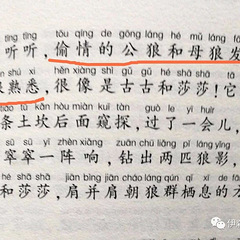 tīng tīng tōu qíng de gōng láng hé mǔ láng fā
听听，偷情的公狼和母狼发
shú xī hěn xiàng shì gǔ gǔ hé shā shā
熟悉，很像是古古和莎莎！它
tiáo tǔ kǎn hòu miàn kuī tàn guò le yí huìr
条土坎后面窥探，过了一会儿，
sū sū yí zhèn xiǎng zuān chū liǎng pǐ láng yǐng
窣窣一阵响，钻出两匹狼影，
hé shā shā jiān bìng jiān cháo láng qún qī xī de
和莎莎，肩并肩朝狼群栖息的